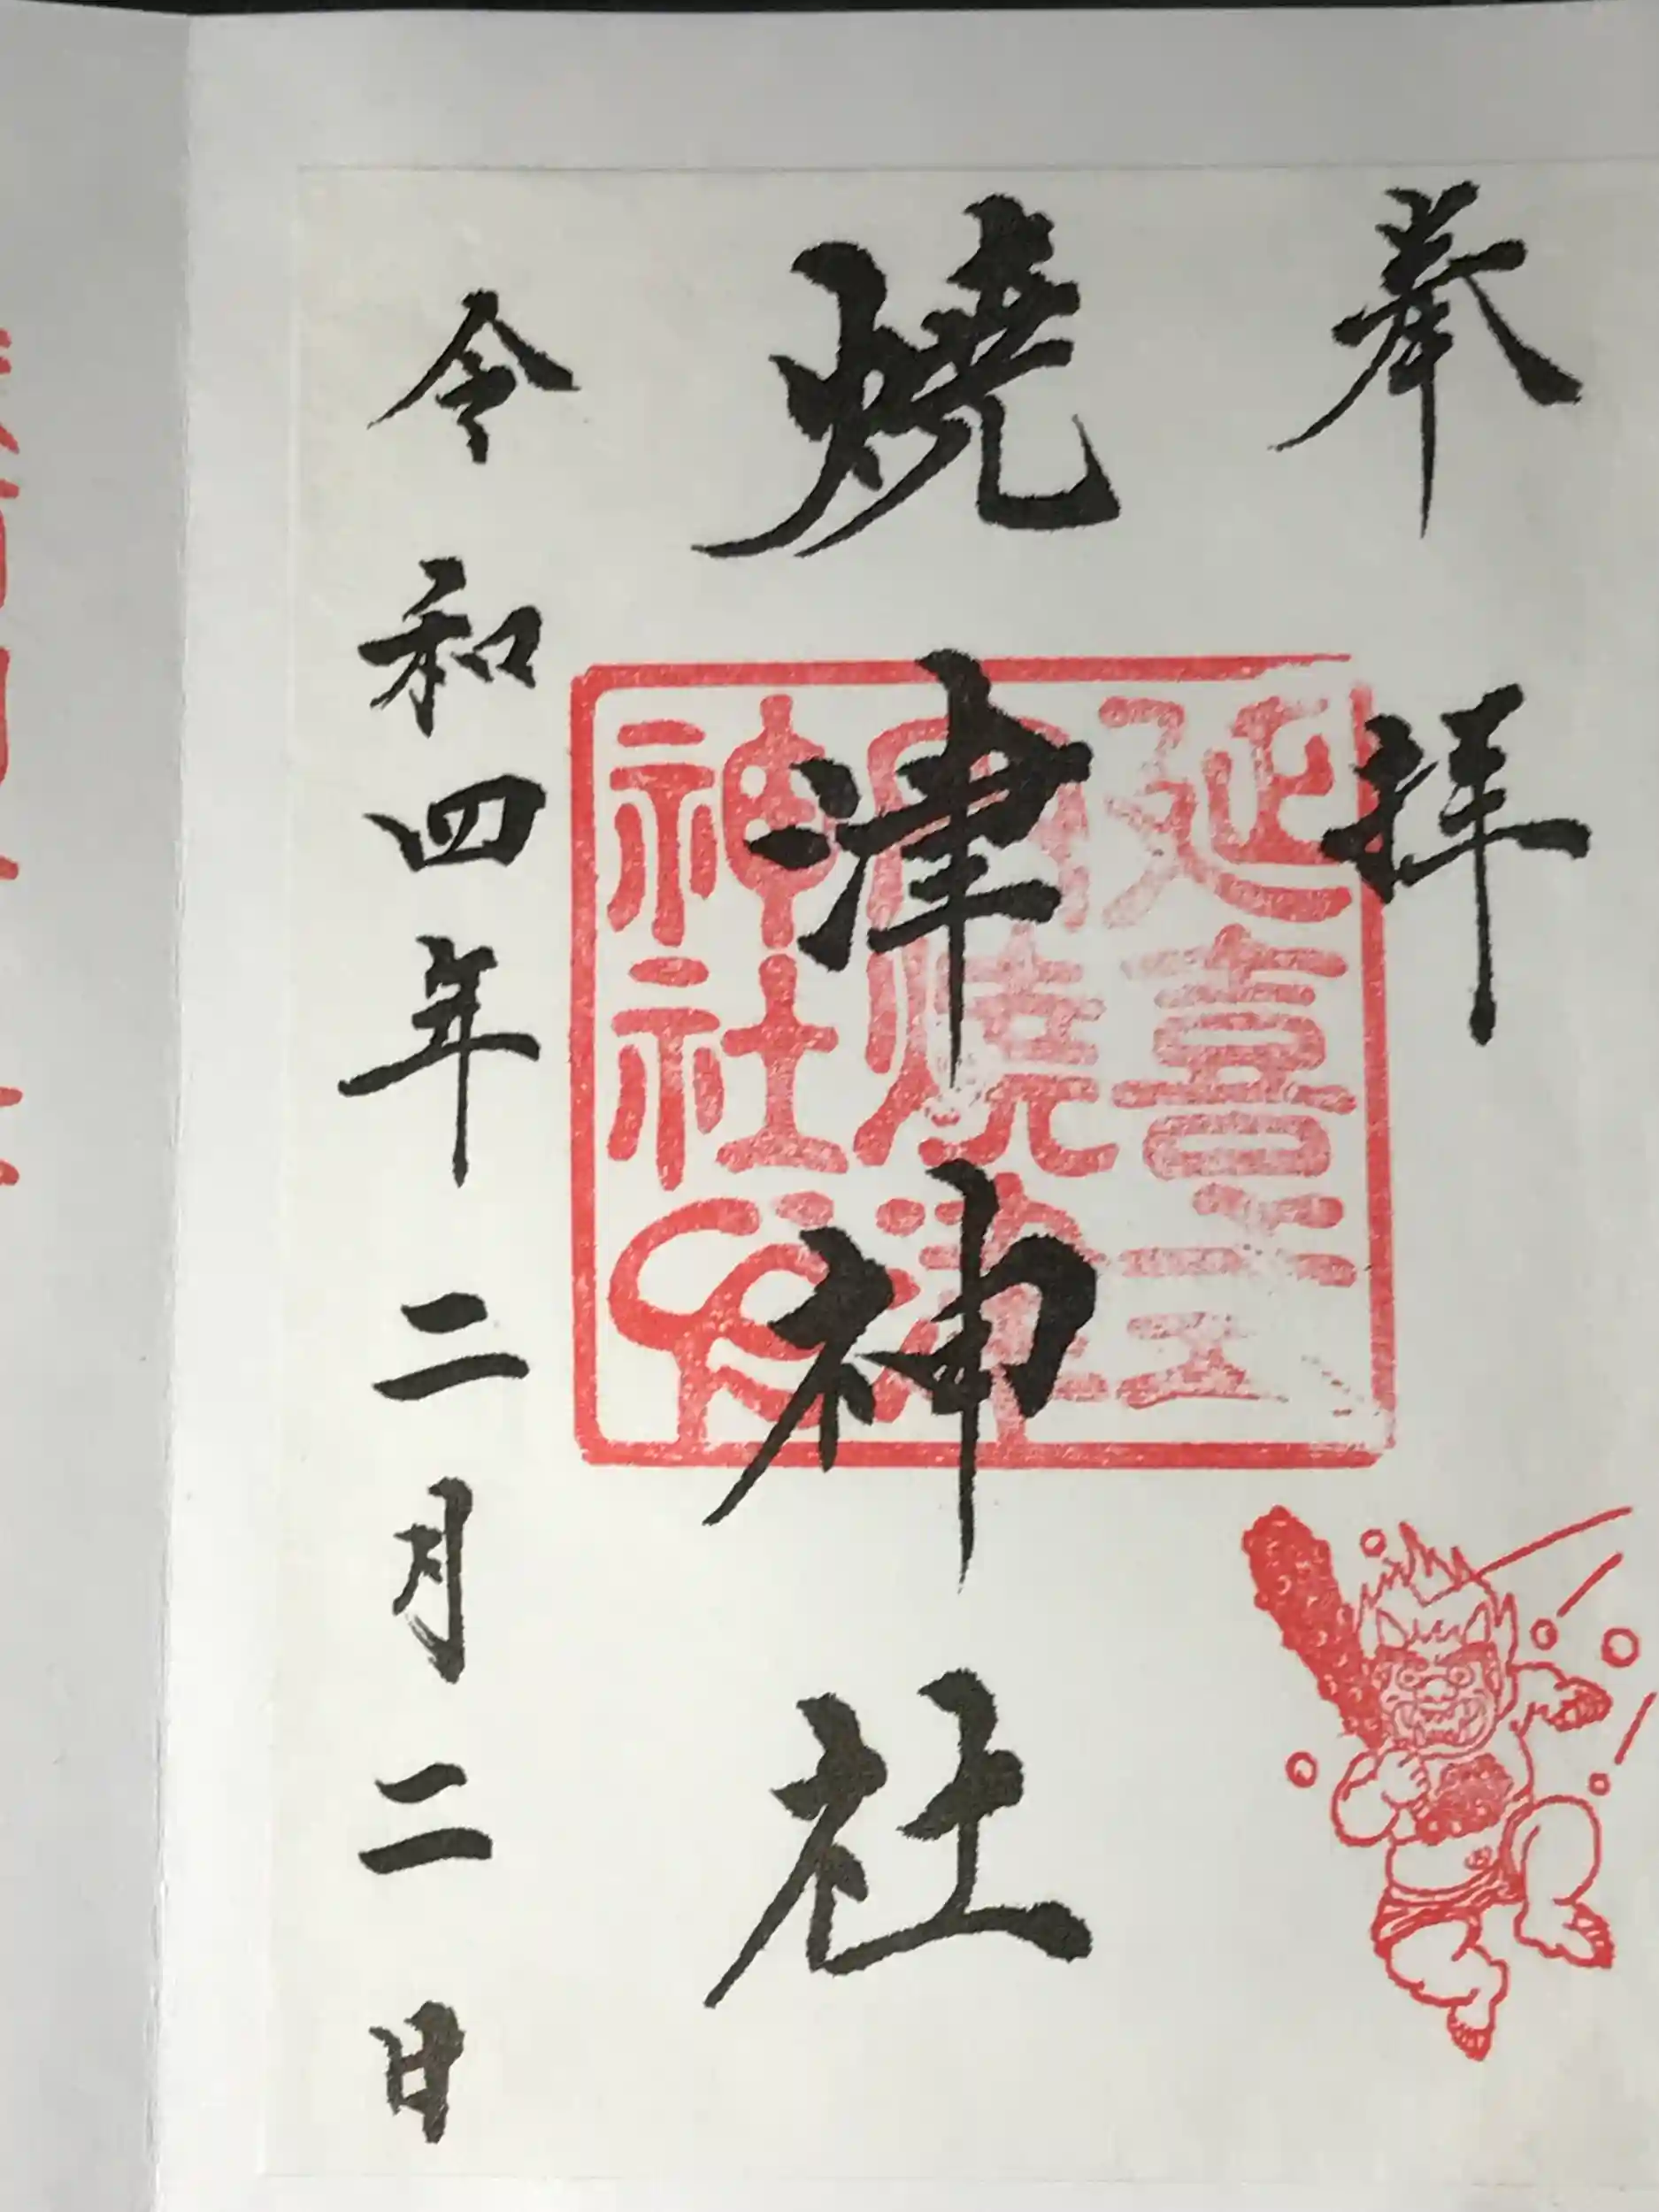 奉拝
焼津神社
令和四年二月二日
延喜式
内焼津
神社